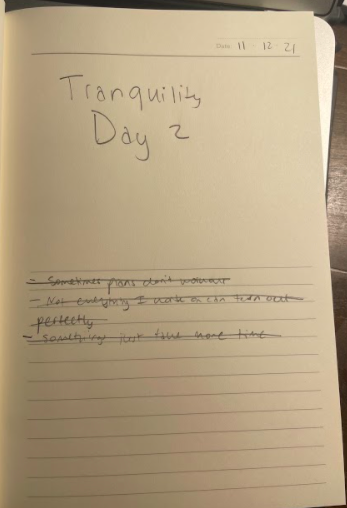 Date 11 · 12 · 21
Tranquility
Day 2
- Sometimes plans don't workout
- Not everything I work on can turn out
perfectly
- Somethings just take more time